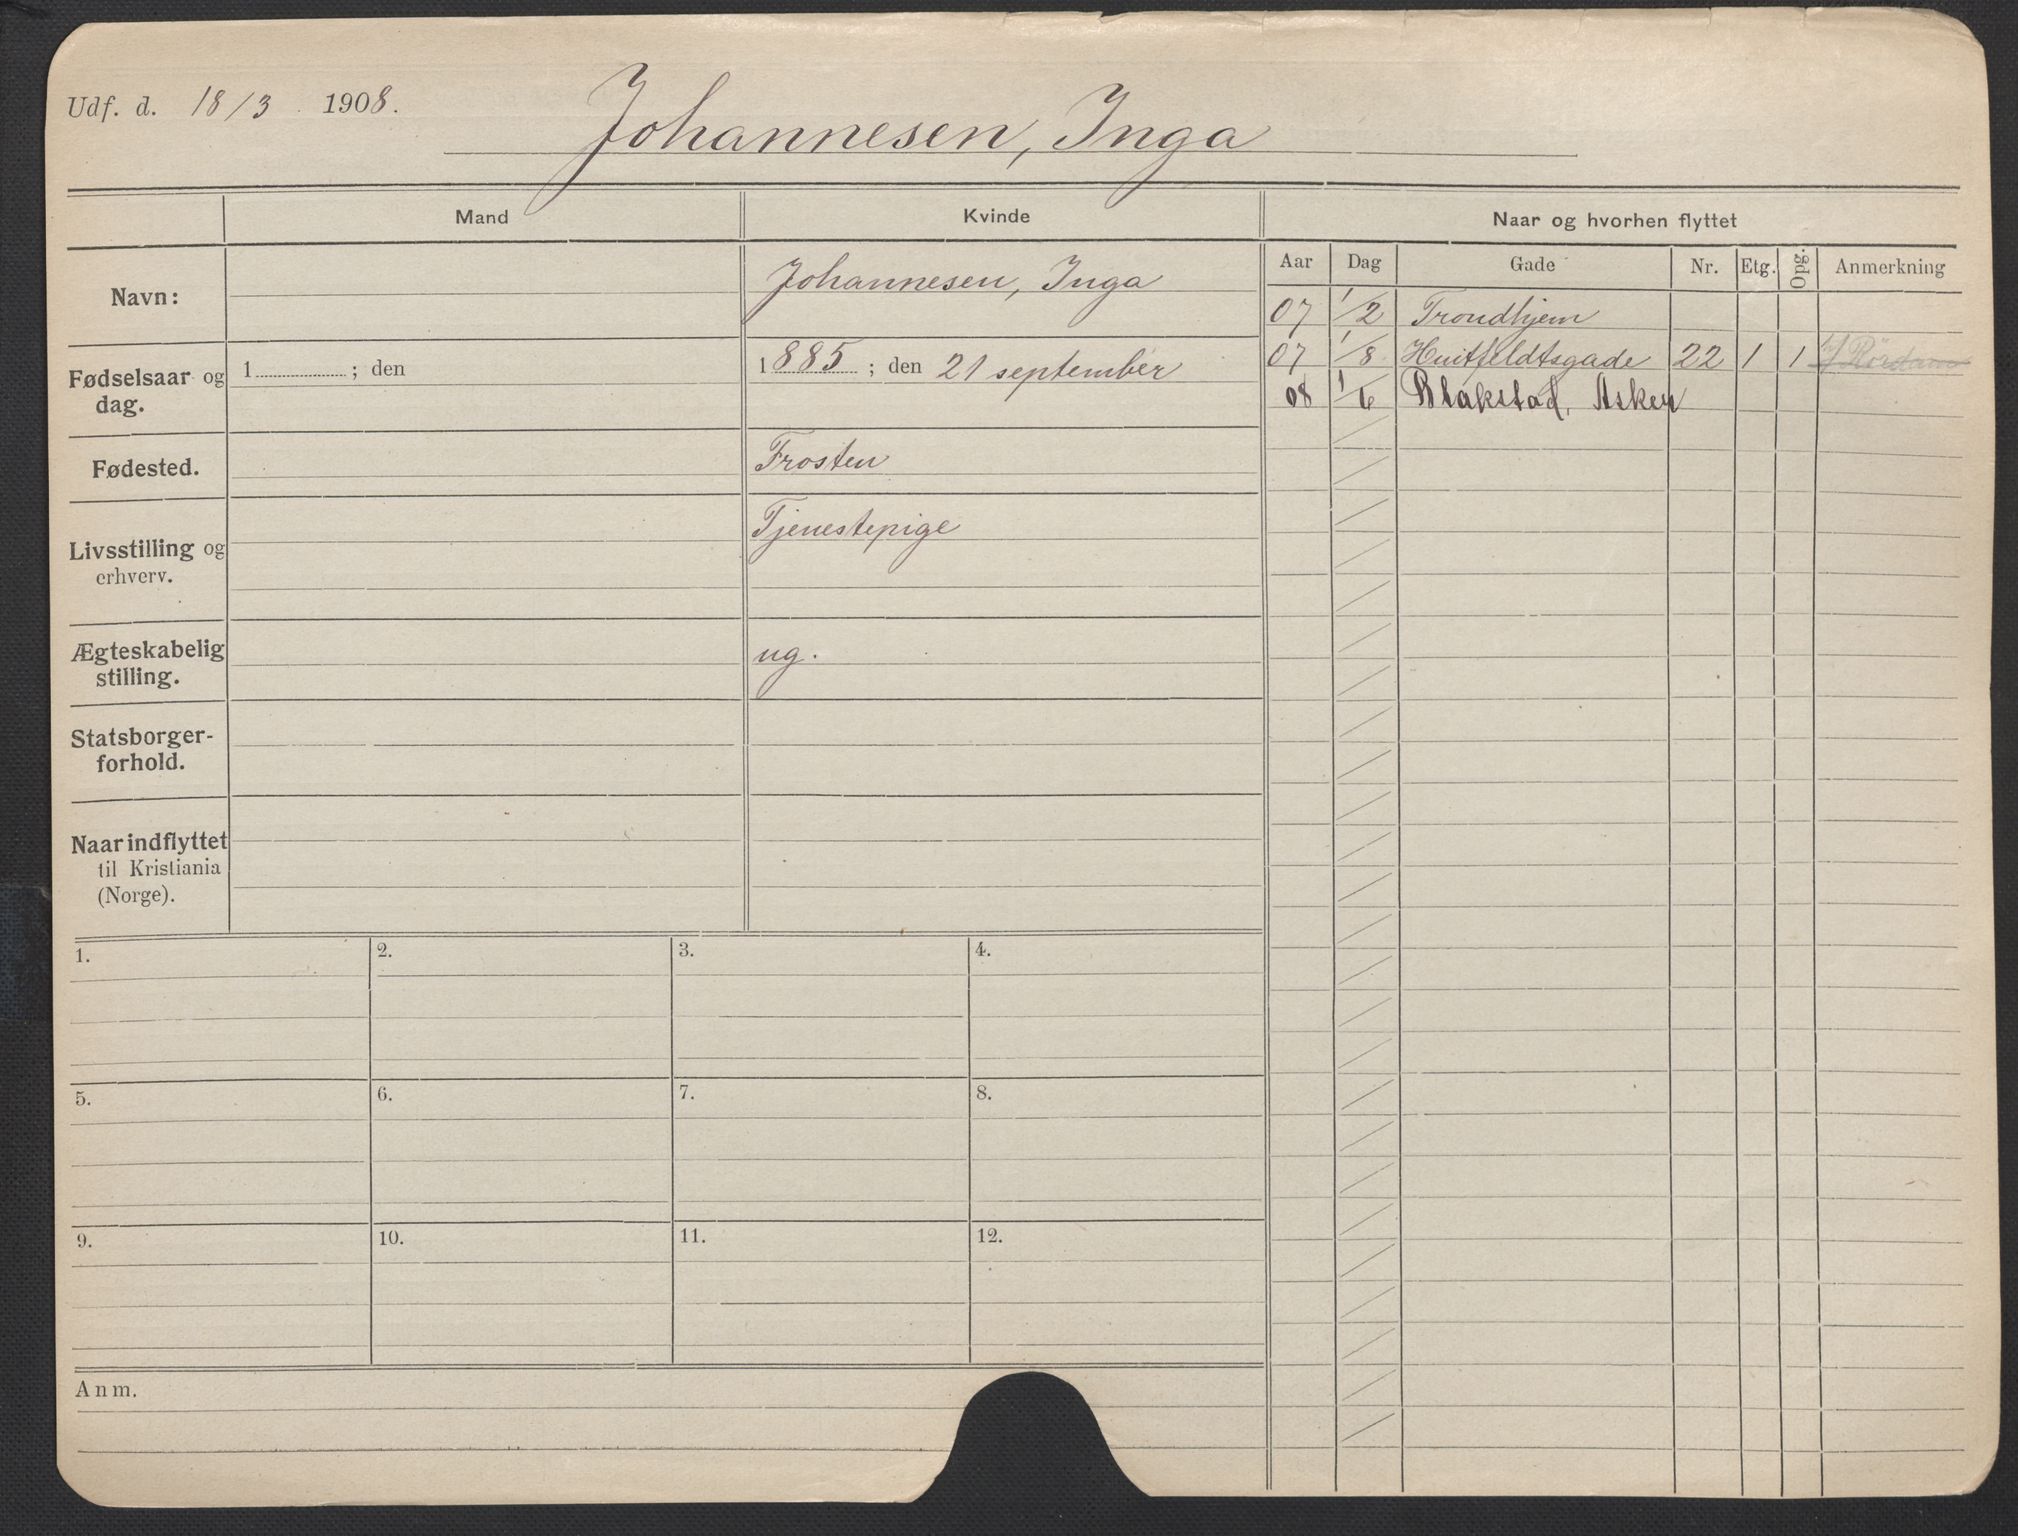 Udf. d. 18/3 1908.
Johannesen, Inga
Mand
Kvinde
Naar og hvorhen flyttet
Navn:
Johannesen, Inga
Fødselsaar og dag.
1 ; den
1885 ; den 21 september
Fødested.
Frosten
Livsstilling og erhverv.
Tjenestepige
Ægteskabelig stilling.
ug.
Statsborger-
forhold.
Naar indflyttet
til Kristiania
(Norge).
Aar Dag Gade Nr. Etg. Opg. Anmerkning
07 1/2 Trondhjem
07 1/8 Huitfeldtsgade 22 1 1 J Rördam
08 1/6 Blakstad, Asker
1. 2. 3. 4.
5. 6. 7. 8.
9. 10. 11. 12.
Anm.